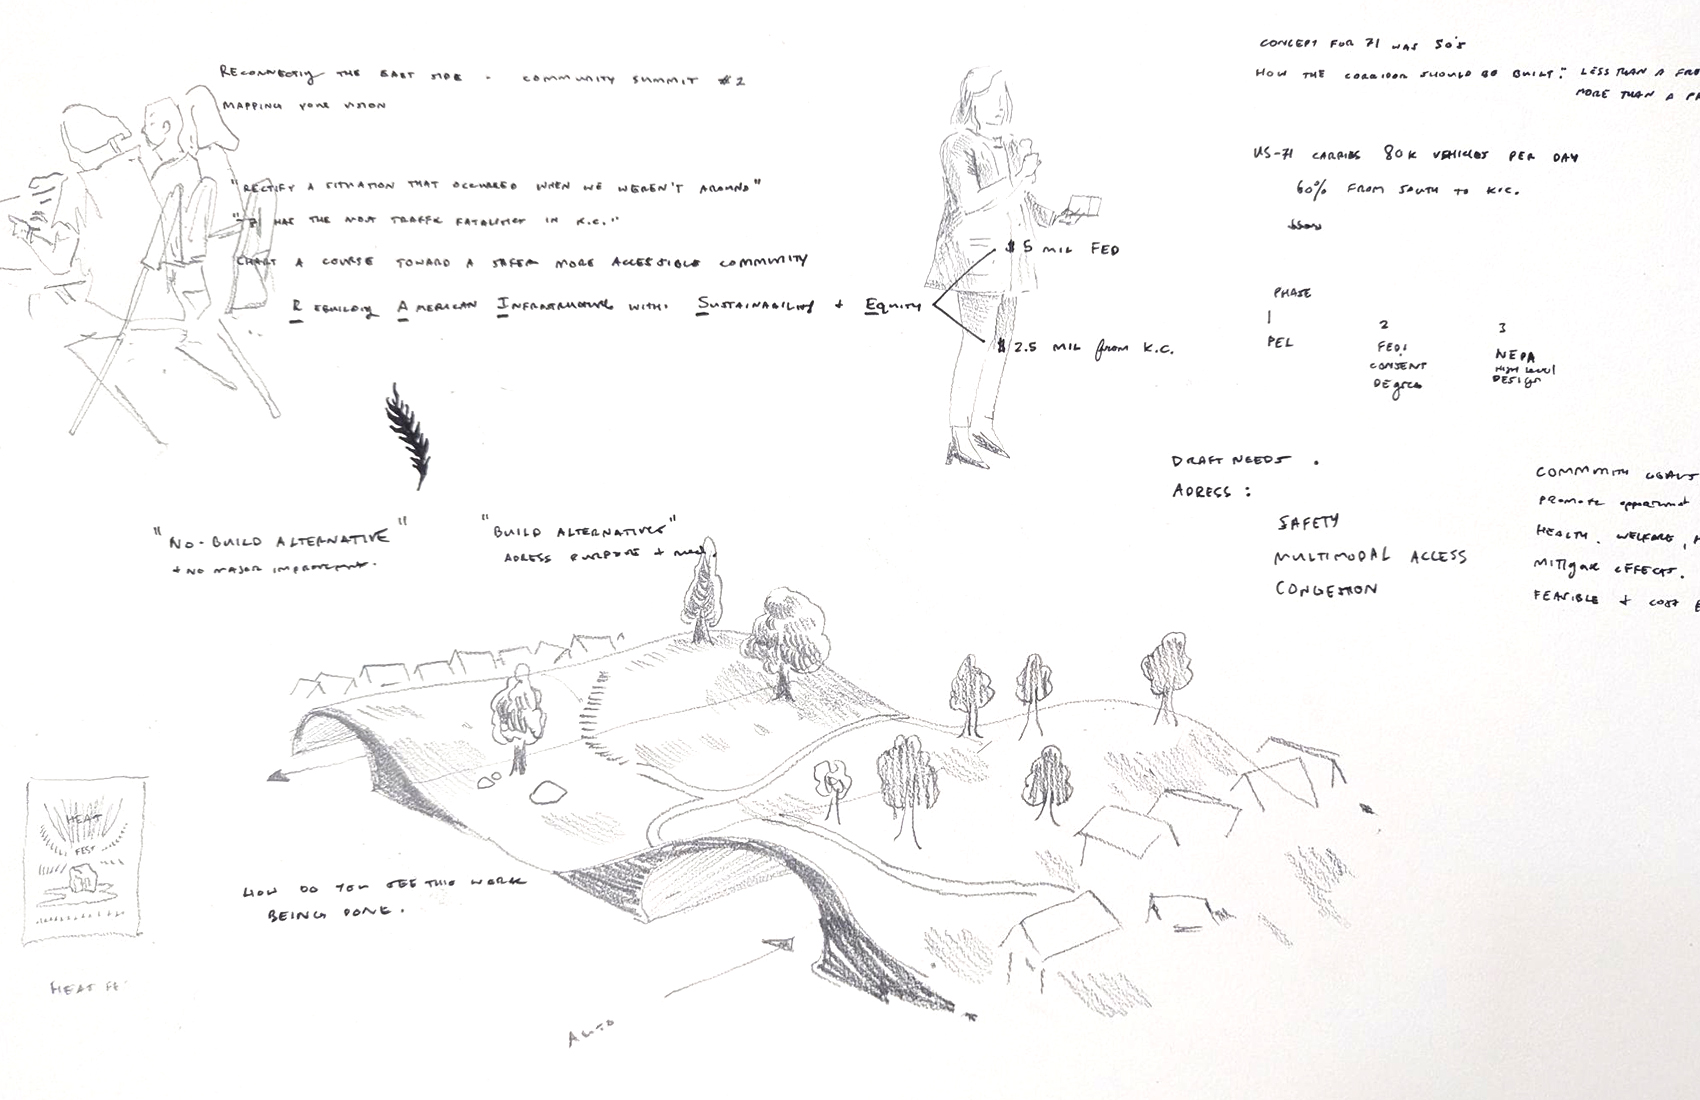 RECONNECTING THE EAST SIDE - COMMUNITY SUMMIT #2
MAPPING YOUR VISION
"RECTIFY A SITUATION THAT OCCURRED WHEN WE WEREN'T AROUND"
"71 HAS THE MOST TRAFFIC FATALITIES IN K.C."
CHART A COURSE TOWARD A SAFER MORE ACCESSIBLE COMMUNITY
REBUILDING AMERICAN INFRASTRUCTURE WITH SUSTAINABILITY + EQUITY
$5 MIL FED
$2.5 MIL from K.C.
CONCEPT FOR 71 WAS 50's
HOW THE CORRIDOR SHOULD BE BUILT: LESS THAN A
MORE THAN A
US-71 CARRIES 80K VEHICLES PER DAY
60% FROM SOUTH TO K.C.
PHASE
1
PEL
2
FED:
CONSENT
DEgree
3
NEPA
HIGH LEVEL
DESIGN
DRAFT NEEDS.
ADRESS:
SAFETY
MULTIMODAL ACCESS
CONGESTION
COMMUNITY GOALS
PROMOTE
HEALTH, WELFARE,
MITIGATE EFFECTS.
FEASIBLE + COST
"NO-BUILD ALTERNATIVE"
+ NO MAJOR IMPROVEMENT.
"BUILD ALTERNATIVES"
ADRESS PURPOSE + need.
HEAT
FEST
HEAT FE
HOW DO YOU SEE THIS WORK
BEING DONE.
AUTO